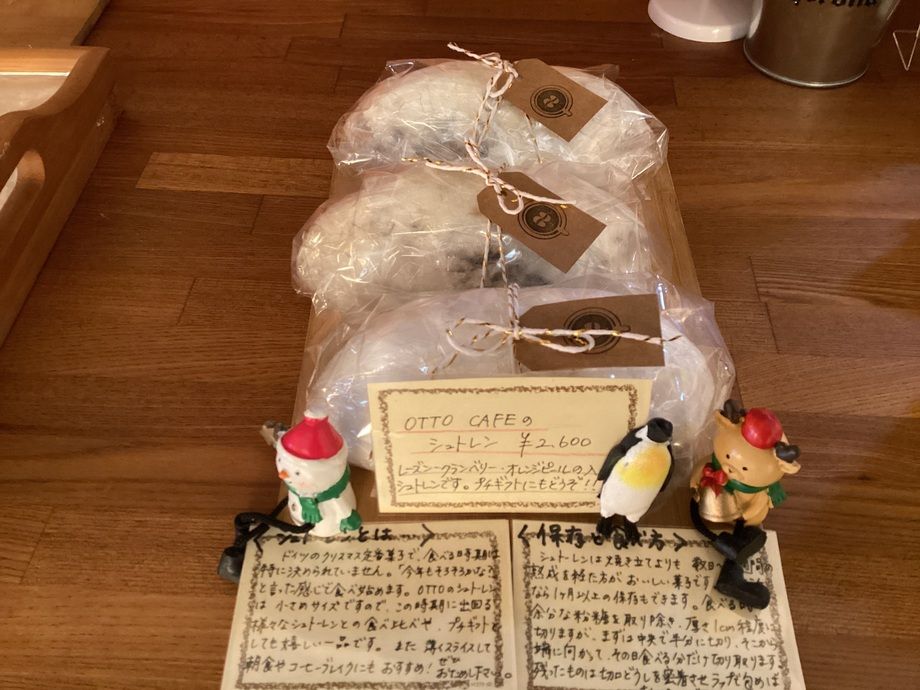 OTTO CAFEの
シュトレン ¥2,600
レーズン・クランベリー・オレンジピールの入
シュトレンです。プチギフトにもどうぞ!!
シュトレンとは
ドイツのクリスマス定番菓子で、食べる時期は
特に決められていません。「今年もそろそろかな?
と言った感じで食べ始めます。OTTOのシュトレン
は小さめサイズですので、この時期に出回る
様々なシュトレンとの食べ比べや、プチギフト
しても嬉しい一品です。また薄くスライスして
朝食やコーヒーブレイクにもおすすめ!ぜひ
おためし下さい。
<保存と食べ方>
シュトレンは焼き立てよりも数日
熟成を経た方がおいしい菓子です
なら1ヶ月以上の保存もできます。食べる時
余分な粉糖を取り除き、厚さ1cm程度に
切りますが、まずは中央で半分に切り、そこから
端に向かって、その日食べる分だけ切り取ります
残ったものは切口どうしを密着させラップで包めば